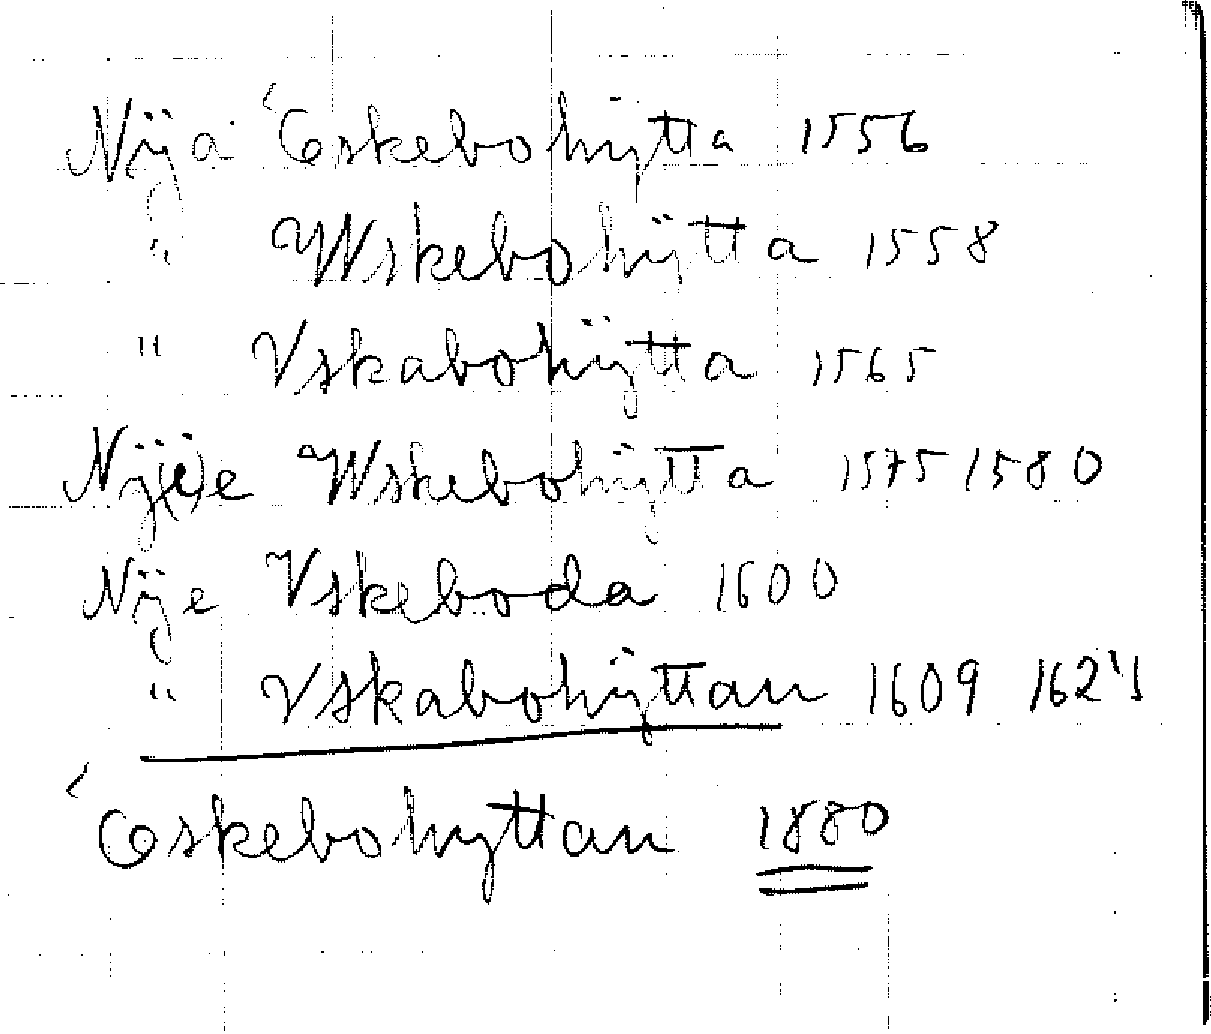 Nÿa ʻEskebohÿtta 1556
" Wskebohÿtta 1558
" Vskabohÿtta 1565
Nÿ(i)e Wskebohÿtta 1575 1580
Nÿe Vskeboda 1600
" Vskabohÿttan 1609 1621
ʻEskebohyttan 1880